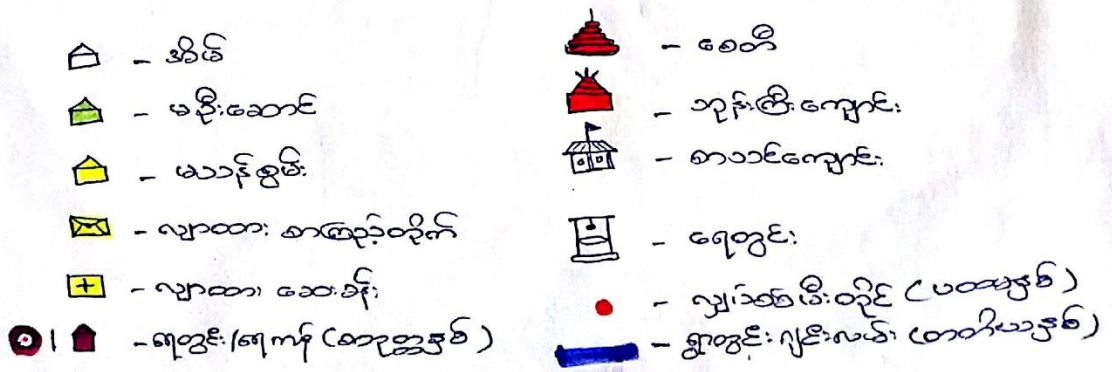 - အိမ်
- မဦးဆောင်
- မသန်စွမ်း
- လျာထား စာကြည့်တိုက်
- လျာထား ဆေးခန်း
- ရေတွင်း/ရေကန် (စတုတ္ထနှစ်)
- စေတီ
- ဘုန်းကြီးကျောင်း
- စာသင်ကျောင်း
- ရေတွင်း
- လျှပ်စစ်မီးတိုင် (ပထမနှစ်)
- ရွာတွင်းဂျင်းလမ်း (တတိယနှစ်)